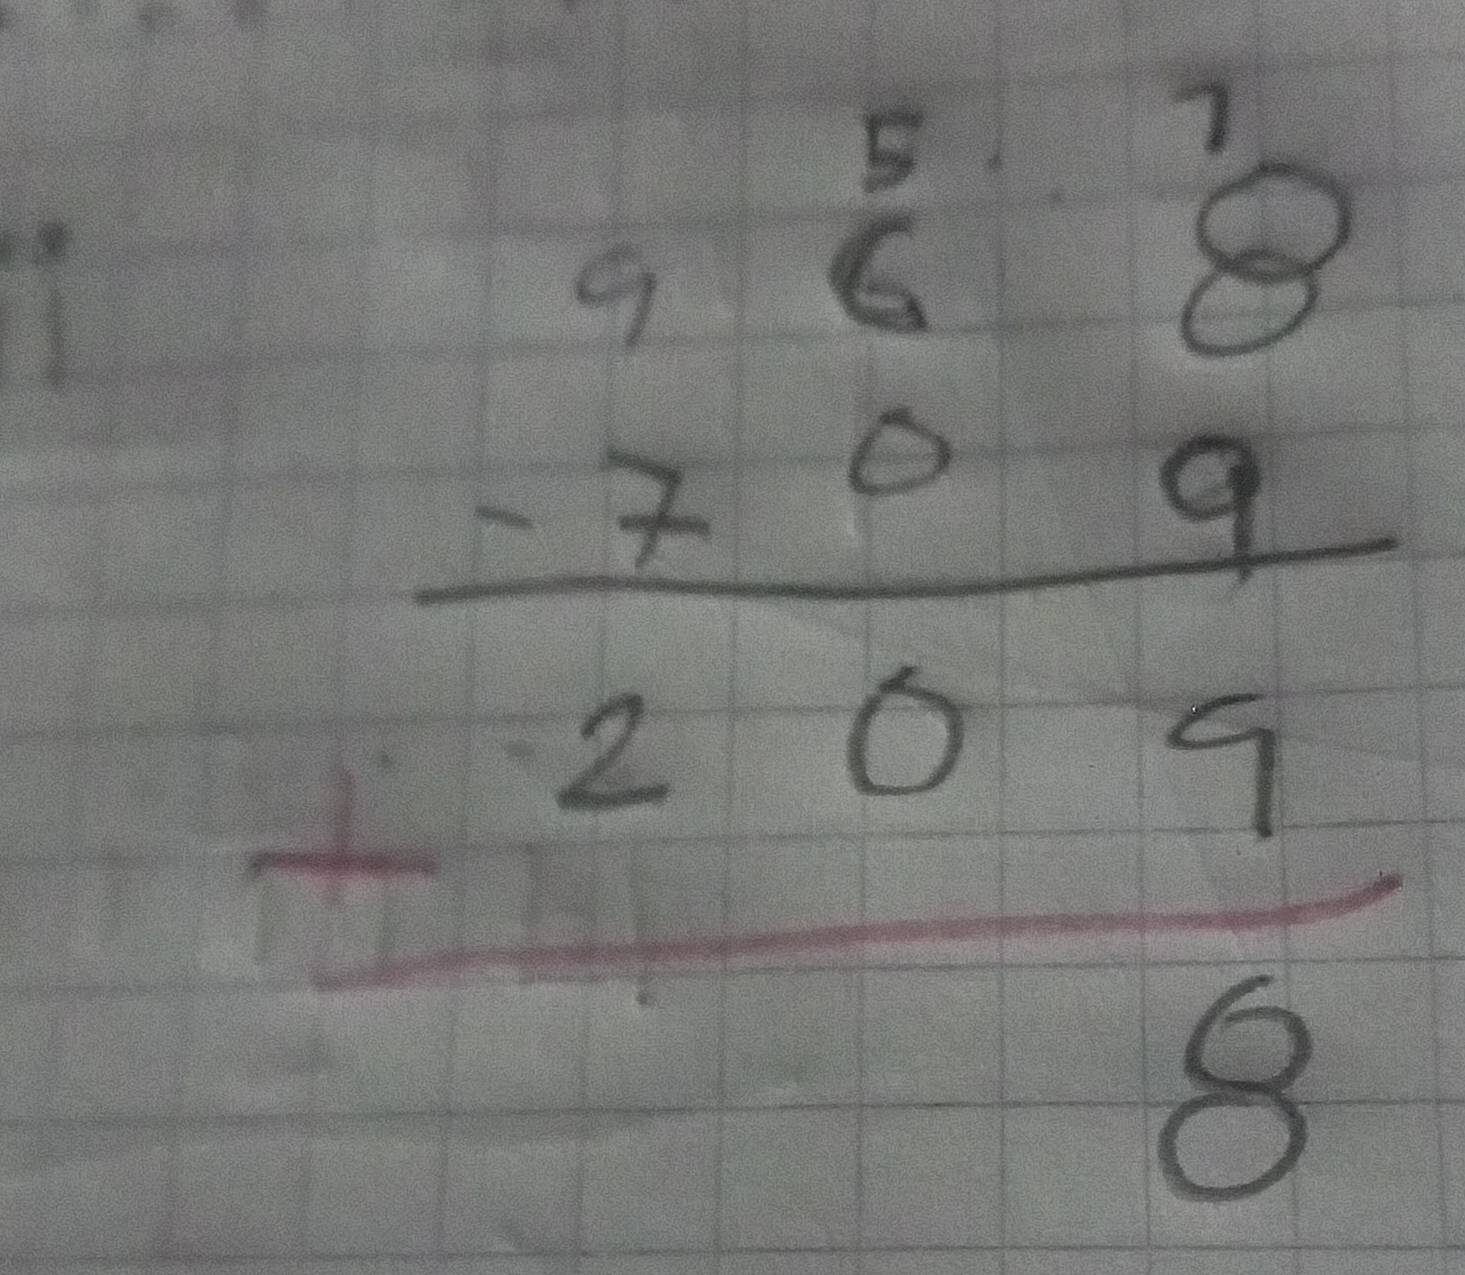 5 1
9 6 8
- 7 0 9
2 0 9
+
8